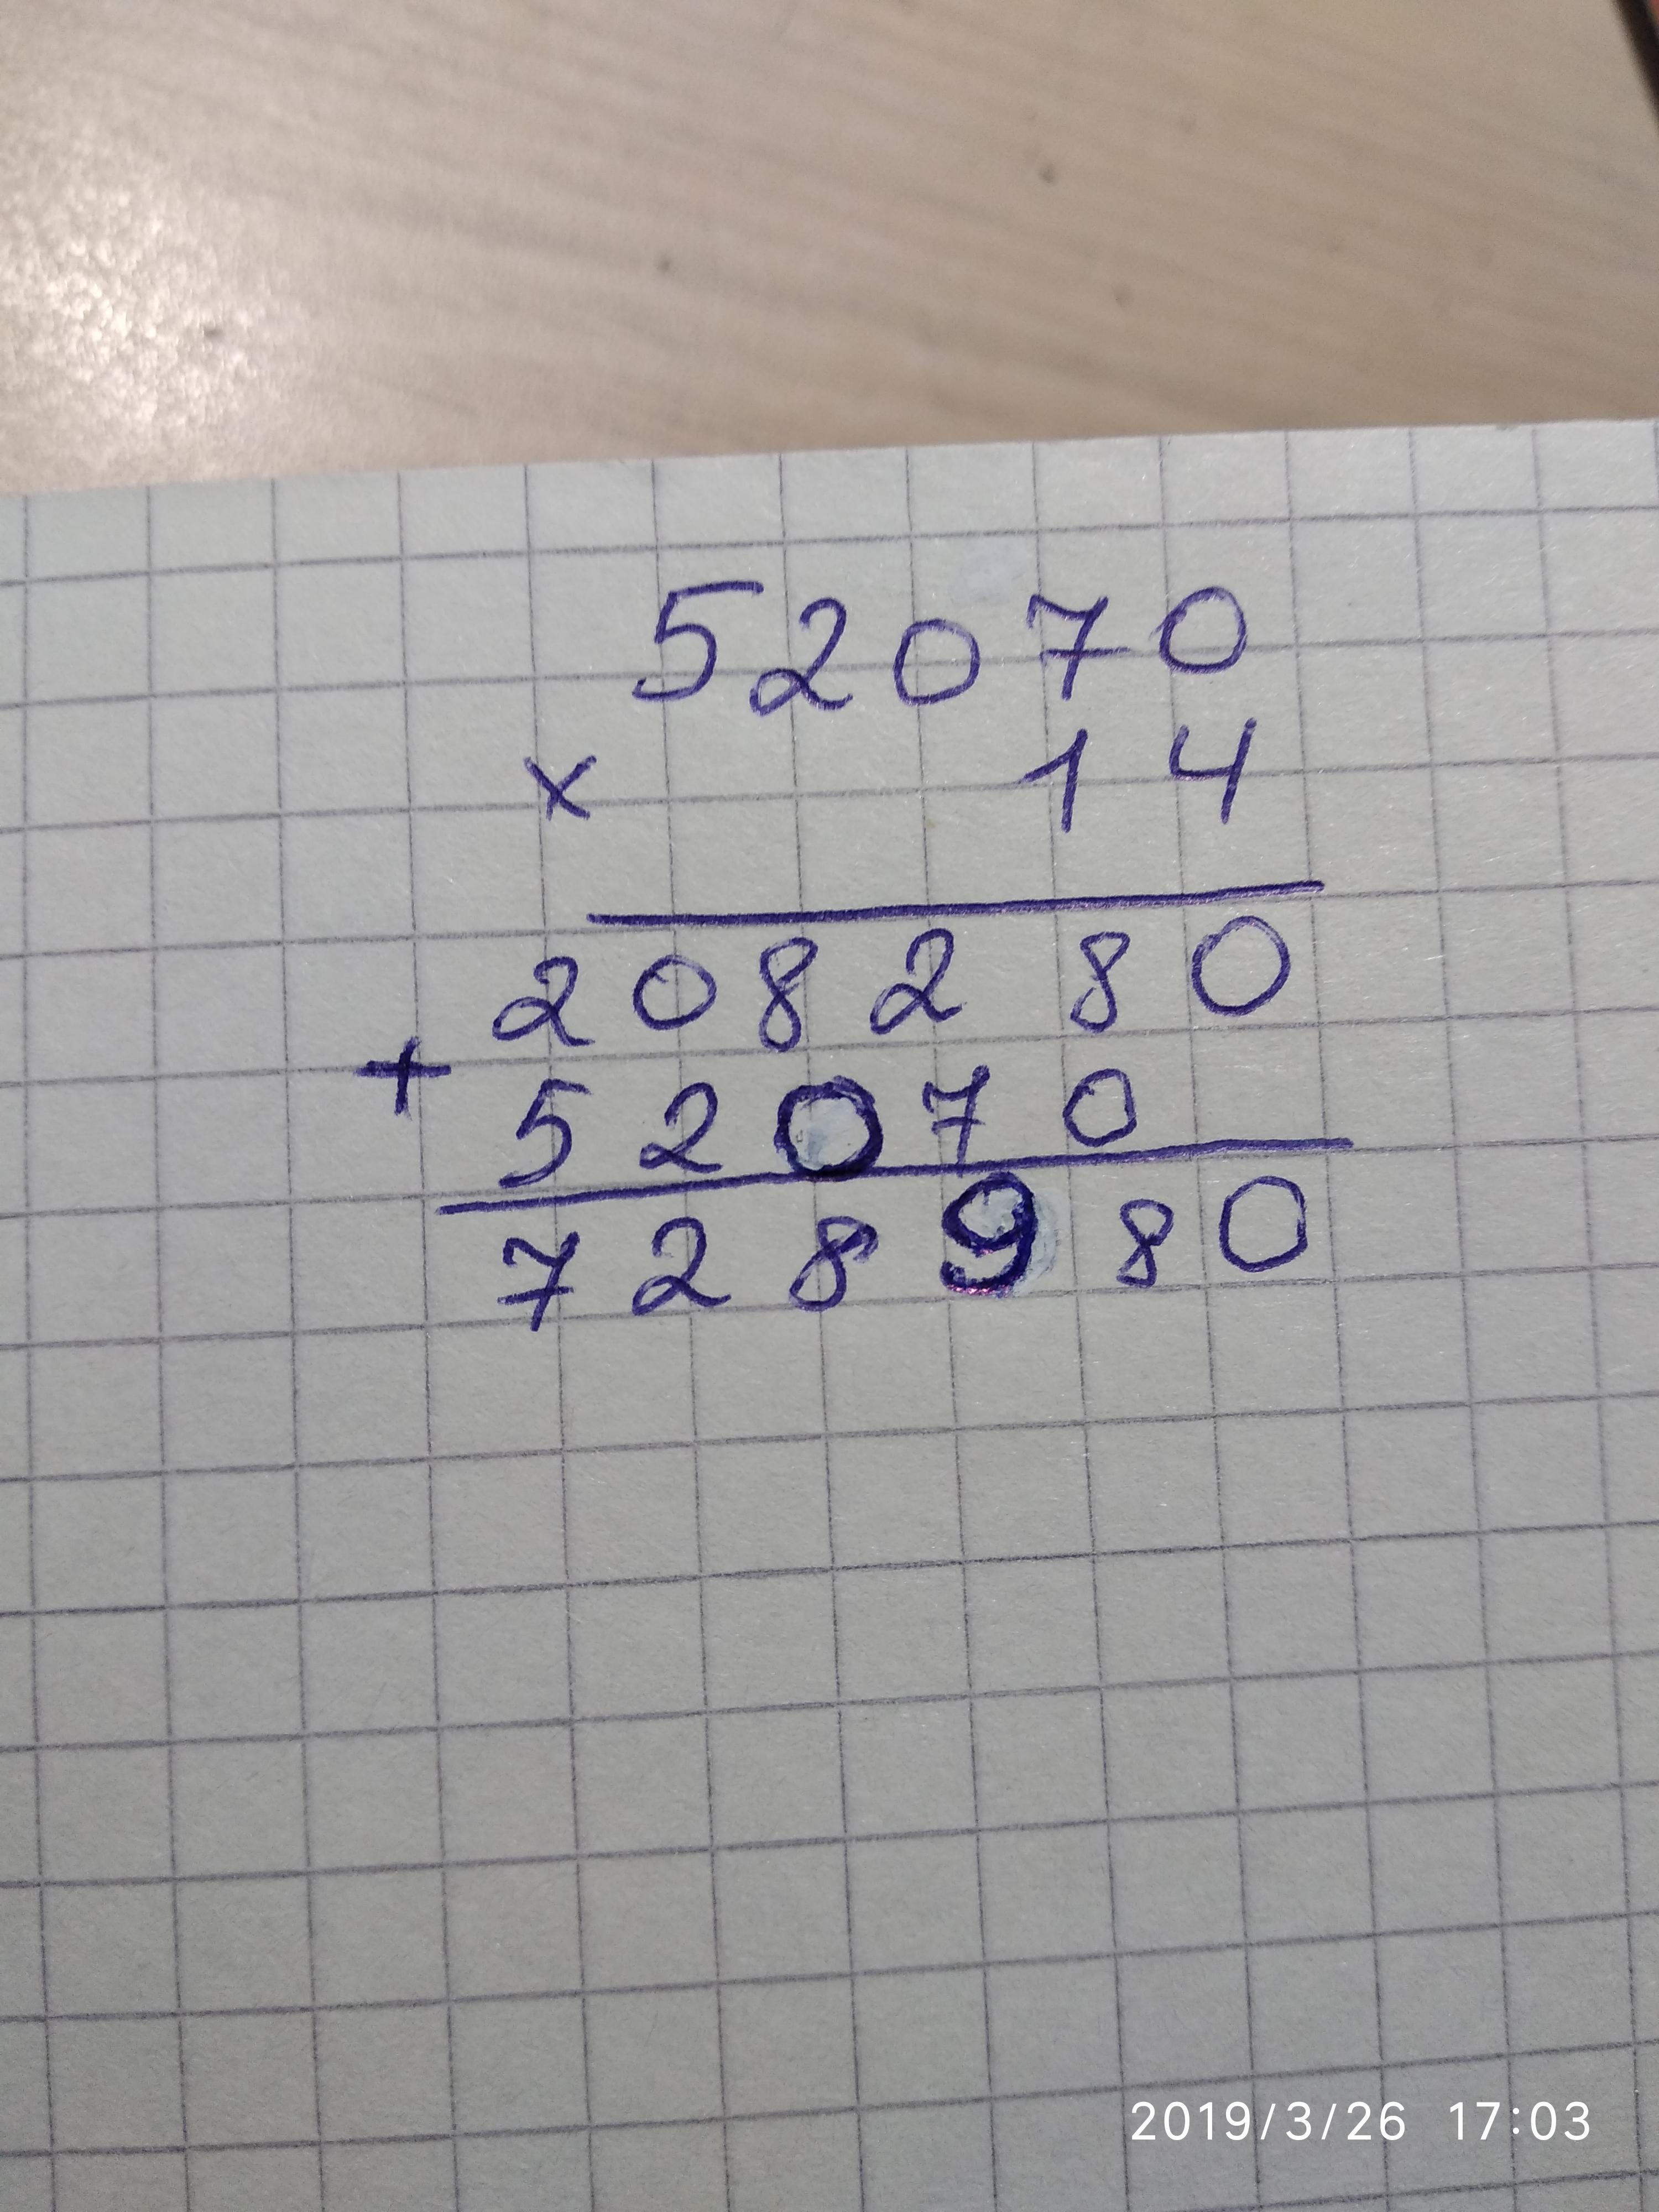 52070
× 14
208280
+
52070
728980
2019/3/26 17:03